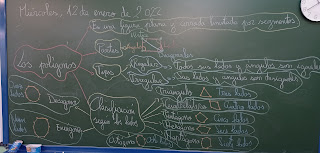 Miércoles, 12 de enero de 2022
Es una figura plana y cerrada limitada por segmentos
Los polígonos
Partes
Vértice
Lado
Diagonales
Tipos
Regulares
Todos sus lados y ángulos son iguales
Irregulares
Sus lados y ángulos son desiguales
Clasificación
según los lados
Triángulo
Tres lados
Cuadriláteros
Cuatro lados
Pentágono
Cinco lados
Hexágono
Seis lados
Heptágono
Siete lados
Octógono
Ocho lados
Eneágono
Nueve
lados
Decágono
Diez
lados